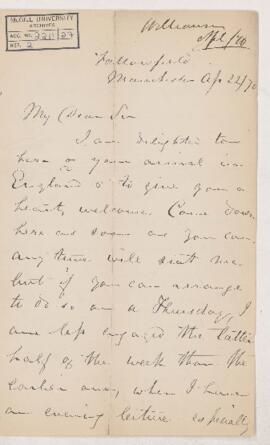 McGILL UNIVERSITY
ARCHIVES
ACC. NO. 2211 27
REF. 2
Williamson
Apl/70
Fallowfield
Manchester Ap 22/70
My Dear Sir
I am delighted to
hear of your arrival in
England & to give you a
hearty welcome. Come down
here as soon as you can
any time will suit me
but if you can arrange
to do so on a Thursday, I
am less engaged the latter
half of the week than the
earlier one, when I have
an evening lecture especially